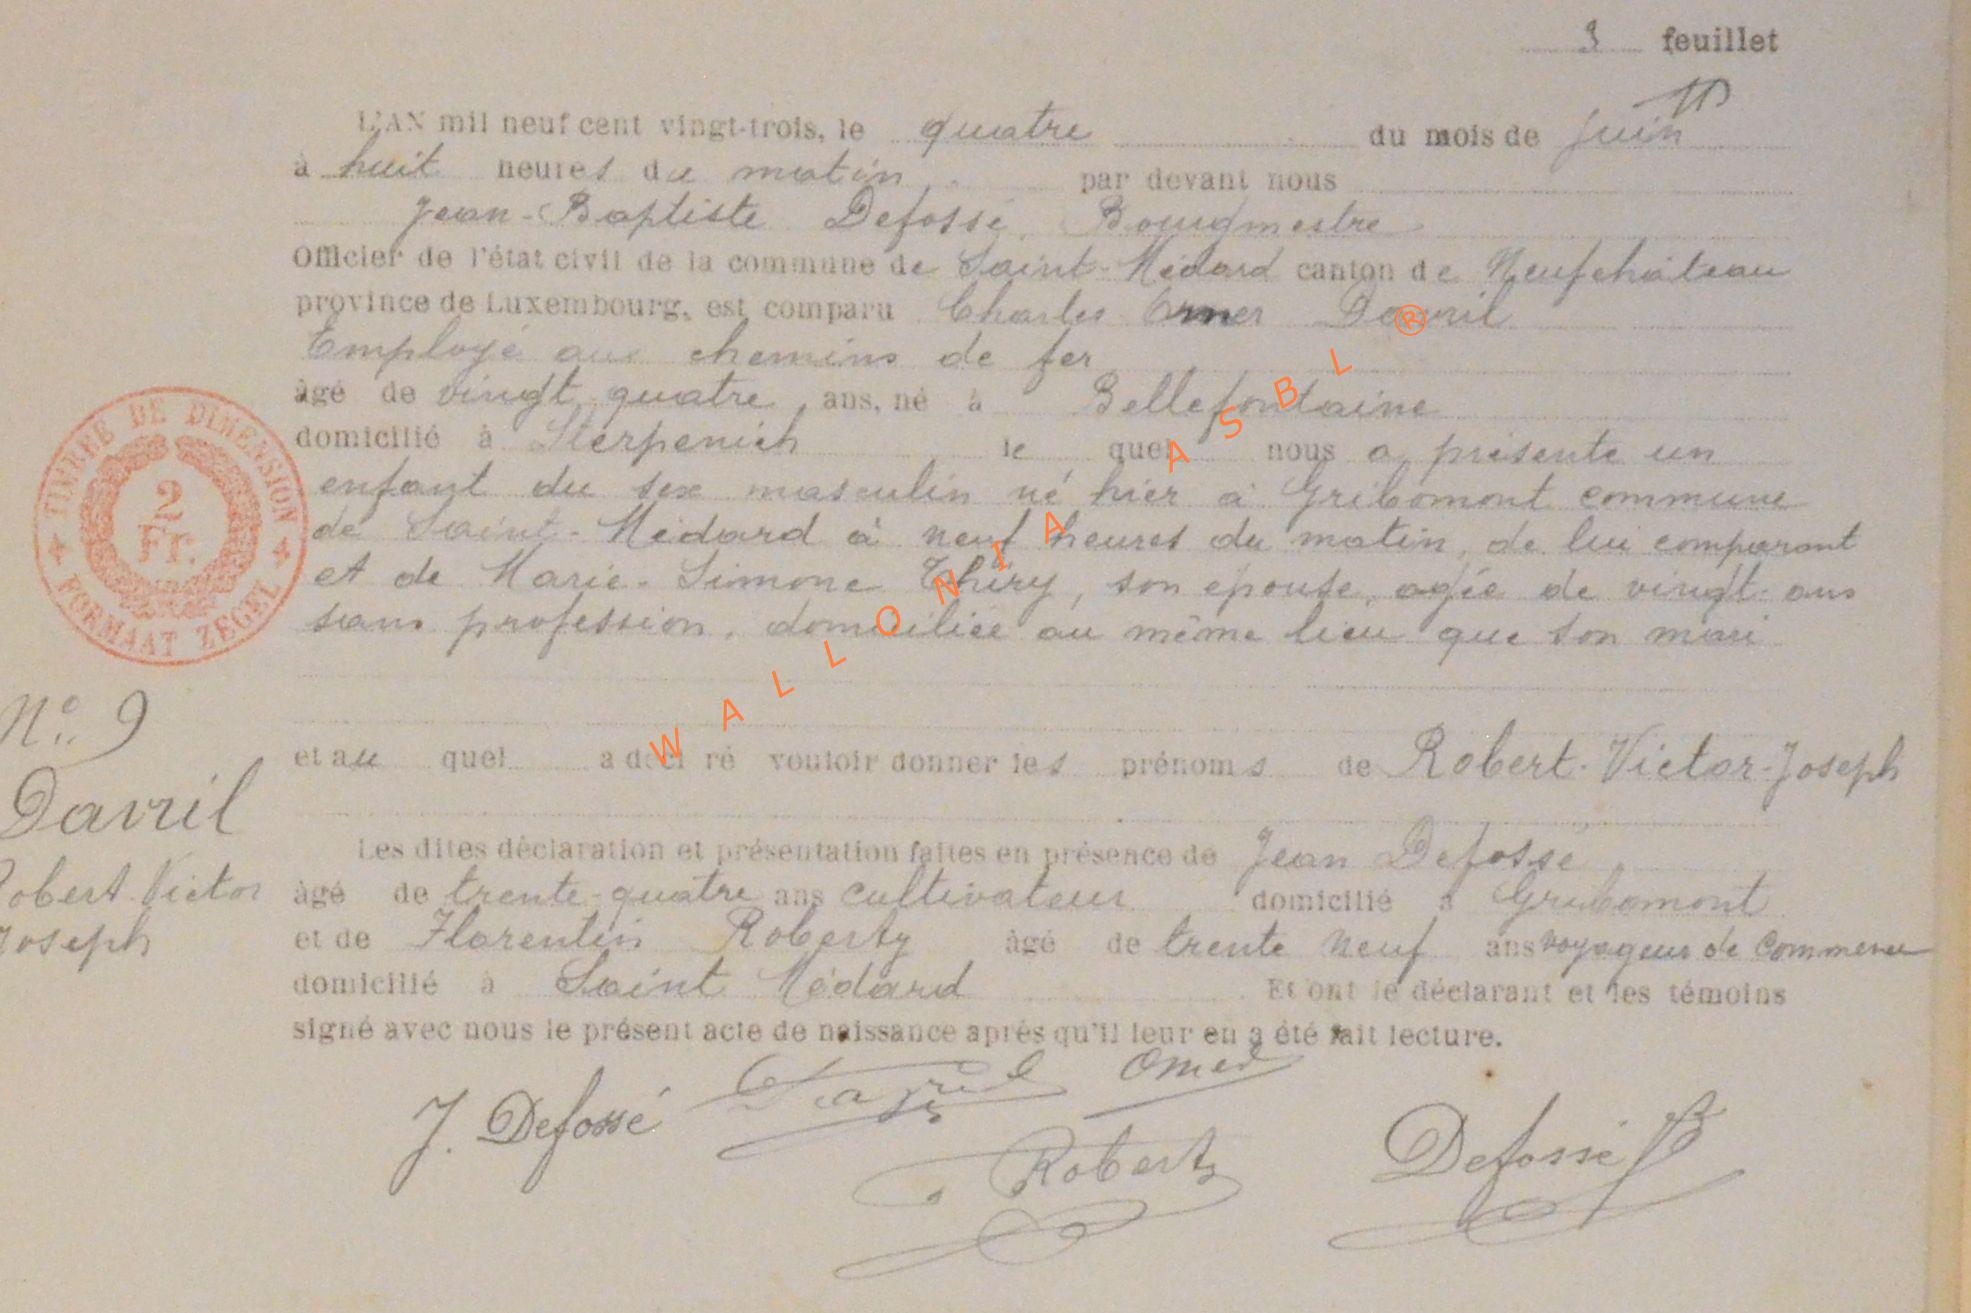 3 feuillet
L'AN mil neuf cent vingt-trois, le quatre du mois de Juin
à huit heures du matin, par devant nous
Jean-Baptiste Defossé, Bourgmestre
Officier de l'état civil de la commune de Saint-Médard canton de Neufchâteau
province de Luxembourg, est comparu Charles Omer Davril
Employé aux chemins de fer
âgé de vingt quatre ans, né à Bellefontaine
domicilié à Sterpenich le quel nous a présenté un
enfant du sexe masculin né hier à Gribomont commune
de Saint-Médard à neuf heures du matin, de lui comparant
et de Marie-Simone Thiry, son épouse, agée de vingt ans
sans profession, domiciliée au même lieu que son mari
TIMBRE DE DIMENSION
2
Fr.
FORMAAT ZEGEL
WALLONIA ASBL ®
N° 9
Davril
Robert Victor
Joseph
et au quel a déclaré vouloir donner les prénoms de Robert-Victor-Joseph
Les dites déclaration et présentation faites en présence de Jean Defossé
âgé de trente-quatre ans cultivateur domicilié à Gribomont
et de Florentin Roberty âgé de trente neuf ans voyageur de commerce
domicilié à Saint Médard Et ont le déclarant et les témoins
signé avec nous le présent acte de naissance après qu'il leur en a été fait lecture.
J. Defossé Davril Omer
Roberty Defossé JB